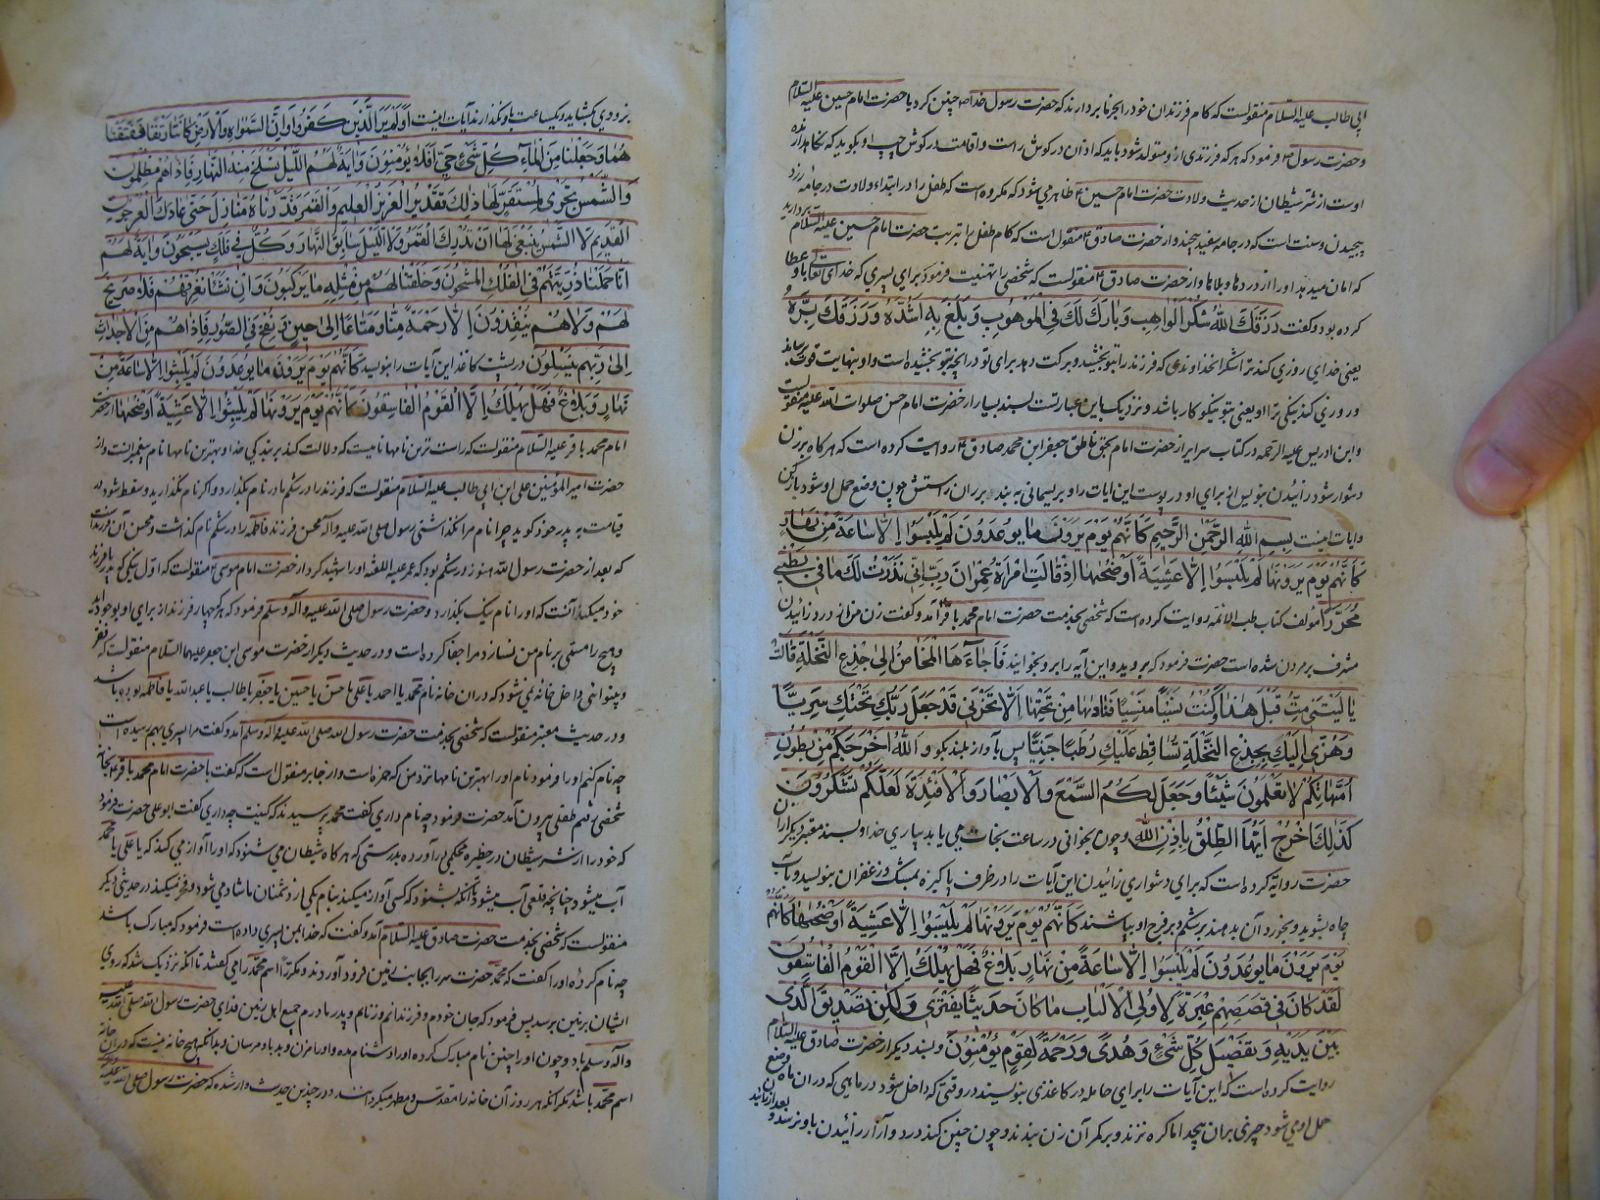 ابی طالب علیه السلام منقولست که کام فرزندان خود را بخرما بردارند که حضرت رسول خدا ص چنین کرد با حضرت امام حسین علیه السلام
و حضرت رسول ص فرمود که هر که فرزندی از او متولد شود باید که اذان در کوش راست و اقامت در کوش چپ او بکوید که نکاهدارنده
اوست از شر شیطان از حدیث ولادت حضرت امام حسین ع ظاهر می شود که مکروه است که طفل را در ابتداء ولادت در جامه زرد
پیچیدن و سنت است که در جامه سفید پیچند و از حضرت صادق ع منقول است که کام طفل را بتربت حضرت امام حسین علیه السلام بردارید
که امان میدهد او را از دردها و بلاها و از حضرت صادق ع منقولست که شخصی را تهنیت فرمود برای پسری که خدای تعالی باو عطا
کرده بود و کفت رَزَقَكَ اللهُ شُكْرَ الْوَاهِبِ وَبَارَكَ لَكَ فِي الْمَوْهُوبِ وَبَلَغَ بِهِ اَشُدَّهُ وَرَزَقَكَ بِرَّهُ
یعنی خدای روزی کند ترا شکر انخداوندی که فرزند را بتو بخشید و برکت دهد برای تو در انچه بتو بخشیده است و او بنهایت قوت رساند
و روزی کند نیکی ترا او یعنی بتو نیکو کار باشد و نزدیک باین عبارتست بسند بسیار از حضرت امام حسن صلوات الله علیه منقولست
و ابن ادریس علیه الرحمه در کتاب سرایر از حضرت امام بحق ناطق جعفر ابن محمد صادق ع روایت کرده است که هر کاه بر زن
دشوار شود زائیدن بنویس از برای او در پوست این ایات را و بریسمانی به بند و بر ران راستش چون وضع حمل او شود باز کن
و ایات اینست بِسْمِ اللهِ الرَّحْمٰنِ الرَّحِيمِ كَاَنَّهُمْ يَوْمَ يَرَوْنَ مَا يُوعَدُونَ لَمْ يَلْبَثُوا اِلَّا سَاعَةً مِنْ نَهَارٍ
كَاَنَّهُمْ يَوْمَ يَرَوْنَهَا لَمْ يَلْبَثُوا اِلَّا عَشِيَّةً اَوْ ضُحٰهَا اِذْ قَالَتِ امْرَاَةُ عِمْرَانَ رَبِّ اِنِّي نَذَرْتُ لَكَ مَا فِي بَطْنِي
مُحَرَّرًا مؤلف کتاب طب الائمه روایت کرده است که شخصی بخدمت حضرت امام محمد باقر ع آمد و کفت زن من از درد زائیدن
مشرف بر مردن شده است حضرت فرمود که برو بدو این آیه را بر و بخوانید فَاَجَاءَهَا الْمَخَاضُ اِلٰى جِذْعِ النَّخْلَةِ قَالَتْ
يَا لَيْتَنِي مِتُّ قَبْلَ هٰذَا وَكُنْتُ نَسْيًا مَنْسِيًّا فَنَادٰىهَا مِنْ تَحْتِهَا اَلَّا تَحْزَنِي قَدْ جَعَلَ رَبُّكِ تَحْتَكِ سَرِيًّا
وَهُزِّي اِلَيْكِ بِجِذْعِ النَّخْلَةِ تُسَاقِطْ عَلَيْكِ رُطَبًا جَنِيًّا پس بآواز بلند بکو وَاللهُ اَخْرَجَكُمْ مِنْ بُطُونِ
اُمَّهَاتِكُمْ لَا تَعْلَمُونَ شَيْئًا وَجَعَلَ لَكُمُ السَّمْعَ وَالْاَبْصَارَ وَالْاَفْئِدَةَ لَعَلَّكُمْ تَشْكُرُونَ
كَذٰلِكَ اُخْرُجْ اَيُّهَا الطَّلْقُ بِاِذْنِ اللهِ و چون بخوانی در ساعت نجات می یابد بیاری خدا و بسند معتبر دیکر از ان
حضرت روایة کرده است که برای دشواری زائیدن این آیات را در ظرف پاکیزه بمشک و زعفران بنویسید و بآب
چاه بشوید و بخورد آن بدهند و بر شکم و بر فرج او بپاشند كَاَنَّهُمْ يَوْمَ يَرَوْنَهَا لَمْ يَلْبَثُوا اِلَّا عَشِيَّةً اَوْ ضُحٰهَا كَاَنَّهُمْ
يَوْمَ يَرَوْنَ مَا يُوعَدُونَ لَمْ يَلْبَثُوا اِلَّا سَاعَةً مِنْ نَهَارٍ بَلَاغٌ فَهَلْ يُهْلَكُ اِلَّا الْقَوْمُ الْفَاسِقُونَ
لَقَدْ كَانَ فِي قَصَصِهِمْ عِبْرَةٌ لِاُولِي الْاَلْبَابِ مَا كَانَ حَدِيثًا يُفْتَرٰى وَلٰكِنْ تَصْدِيقَ الَّذِي
بَيْنَ يَدَيْهِ وَتَفْصِيلَ كُلِّ شَيْءٍ وَهُدًى وَرَحْمَةً لِقَوْمٍ يُؤْمِنُونَ و بسند دیکر از حضرت صادق علیه السلام
روایت کرده است که این آیات را برای حامله در کاغذی بنویسند در وقتی که داخل شود در ماهی که در ان ماه وضع
حمل او می شود چیزی بران پیچد اما کره نزند و بر کمر آن زن ببندند و چون چنین کند درد و آزار زائیدن باو نرسد و بعد از زائیدن
بزودی بکشاید و یکساعت باو نکذارند آیات اینست اَوَلَمْ يَرَ الَّذِينَ كَفَرُوا اَنَّ السَّمٰوَاتِ وَالْاَرْضَ كَانَتَا رَتْقًا فَفَتَقْنَا
هُمَا وَجَعَلْنَا مِنَ الْمَاءِ كُلَّ شَيْءٍ حَيٍّ اَفَلَا يُؤْمِنُونَ وَاٰيَةٌ لَهُمُ اللَّيْلُ نَسْلَخُ مِنْهُ النَّهَارَ فَاِذَا هُمْ مُظْلِمُونَ
وَالشَّمْسُ تَجْرِي لِمُسْتَقَرٍّ لَهَا ذٰلِكَ تَقْدِيرُ الْعَزِيزِ الْعَلِيمِ وَالْقَمَرَ قَدَّرْنَاهُ مَنَازِلَ حَتّٰى عَادَ كَالْعُرْجُونِ
الْقَدِيمِ لَا الشَّمْسُ يَنْبَغِي لَهَا اَنْ تُدْرِكَ الْقَمَرَ وَلَا اللَّيْلُ سَابِقُ النَّهَارِ وَكُلٌّ فِي فَلَكٍ يَسْبَحُونَ وَاٰيَةٌ لَهُمْ
اَنَّا حَمَلْنَا ذُرِّيَّتَهُمْ فِي الْفُلْكِ الْمَشْحُونِ وَخَلَقْنَا لَهُمْ مِنْ مِثْلِهِ مَا يَرْكَبُونَ وَاِنْ نَشَأْ نُغْرِقْهُمْ فَلَا صَرِيخَ
لَهُمْ وَلَا هُمْ يُنْقَذُونَ اِلَّا رَحْمَةً مِنَّا وَمَتَاعًا اِلٰى حِينٍ وَنُفِخَ فِي الصُّورِ فَاِذَا هُمْ مِنَ الْاَجْدَاثِ
اِلٰى رَبِّهِمْ يَنْسِلُونَ و در پشت کاغذ این آیات را بنولیسد كَاَنَّهُمْ يَوْمَ يَرَوْنَ مَا يُوعَدُونَ لَمْ يَلْبَثُوا اِلَّا سَاعَةً مِنْ
نَهَارٍ بَلَاغٌ فَهَلْ يُهْلَكُ اِلَّا الْقَوْمُ الْفَاسِقُونَ كَاَنَّهُمْ يَوْمَ يَرَوْنَهَا لَمْ يَلْبَثُوا اِلَّا عَشِيَّةً اَوْ ضُحٰهَا از حضرت
امام محمد باقر علیه السلام منقولست که راست ترین نامها نامیست که دلالت کند بر بندکی خدا و بهترین نامها نام پیغمبرانست و از
حضرت امیر المؤمنین علی ابن ابی طالب علیه السلام منقولست که فرزند را در شکم مادر نام بکذارید و اکر نام نکذارید و سقط شود در
قیامت به پدر خود کوید چرا نام مرا نکذاشتی رسول صلی الله علیه و آله محسن فرزند فاطمه را در شکم نام کذاشت و محسن آن فرزندیست
که بعد از حضرت رسول الله هنوز در شکم بود که عمر علیه اللعنه او را شهید کرد از حضرت امام موسی ع منقولست که اول نیکی که پدر با فرزند
خود میکند آنست که او را نام نیک بکذارد و حضرت رسول صلی الله علیه و آله وسلم فرمود که هر که چهار فرزند از برای او بوجود آید
و هیچ را مسمی بنام من نسازد مرا جفا کرده است و در حدیث دیکر از حضرت موسی ابن جعفر علیهما السلام منقولست که فقر
و بینوایی داخل خانه نمی شود که دران خانه نام محمد یا احمد یا علی یا حسن یا حسین یا جعفر یا طالب یا عبد الله یا فاطمه بوده باشد
و در حدیث معتبر منقولست که شخصی بخدمت حضرت رسول الله صلی الله علیه و آله وسلم آمد و کفت مرا پسری بهم رسیده است
چه نام کنم او را فرمود نام او را بهترین نامها نزد من که حمزه است و از جابر منقول است که کفت با حضرت امام محمد باقر ع بخانه
شخصی رفتم طفلی بیرون آمد حضرت فرمود چه نام داری کفت محمد پرسید که کنیت چه داری کفت ابو علی حضرت فرمود
که خود را از شر شیطان در حظیره محکمی درآورده بدرستی که هر کاه شیطان می شنود که او را آواز می کند که یا علی یا محمد
آب میشود چنانچه قلعی آب میشود تا آنکه بشنود که کسی آواز میکند بنام یکی از دشمنان ما شاد می شود و فخر میکند در حدیثی دیکر
منقولست که شخصی بخدمت حضرت صادق علیه السلام آمد و کفت که خدا بمن پسری داده است فرمود که مبارک باشد
چه نام کرده او را کفت که محمد حضرت سر را بجانب زمین فرود آوردند و مکررا اسم محمد را می کفتند تا آنکه نزدیک شد که روی
ایشان بر زمین برسد پس فرمود که جان خودم و فرزندانم و زنانم و پدر و مادرم و جمیع اهل زمین فدای حضرت رسول الله صلی الله علیه
و آله وسلم باد و چون او را چنین نام مبارک کرده او را دشنام مده و او را مزن و بد باو مرسان و بدانکه هیچ خانه نیست که دران خانه
اسم محمد باشد مکر آنکه هر روز آن خانه را مقدس و مطهر میکردانند و در چندین حدیث وارد شده که حضرت رسول صلی الله علیه